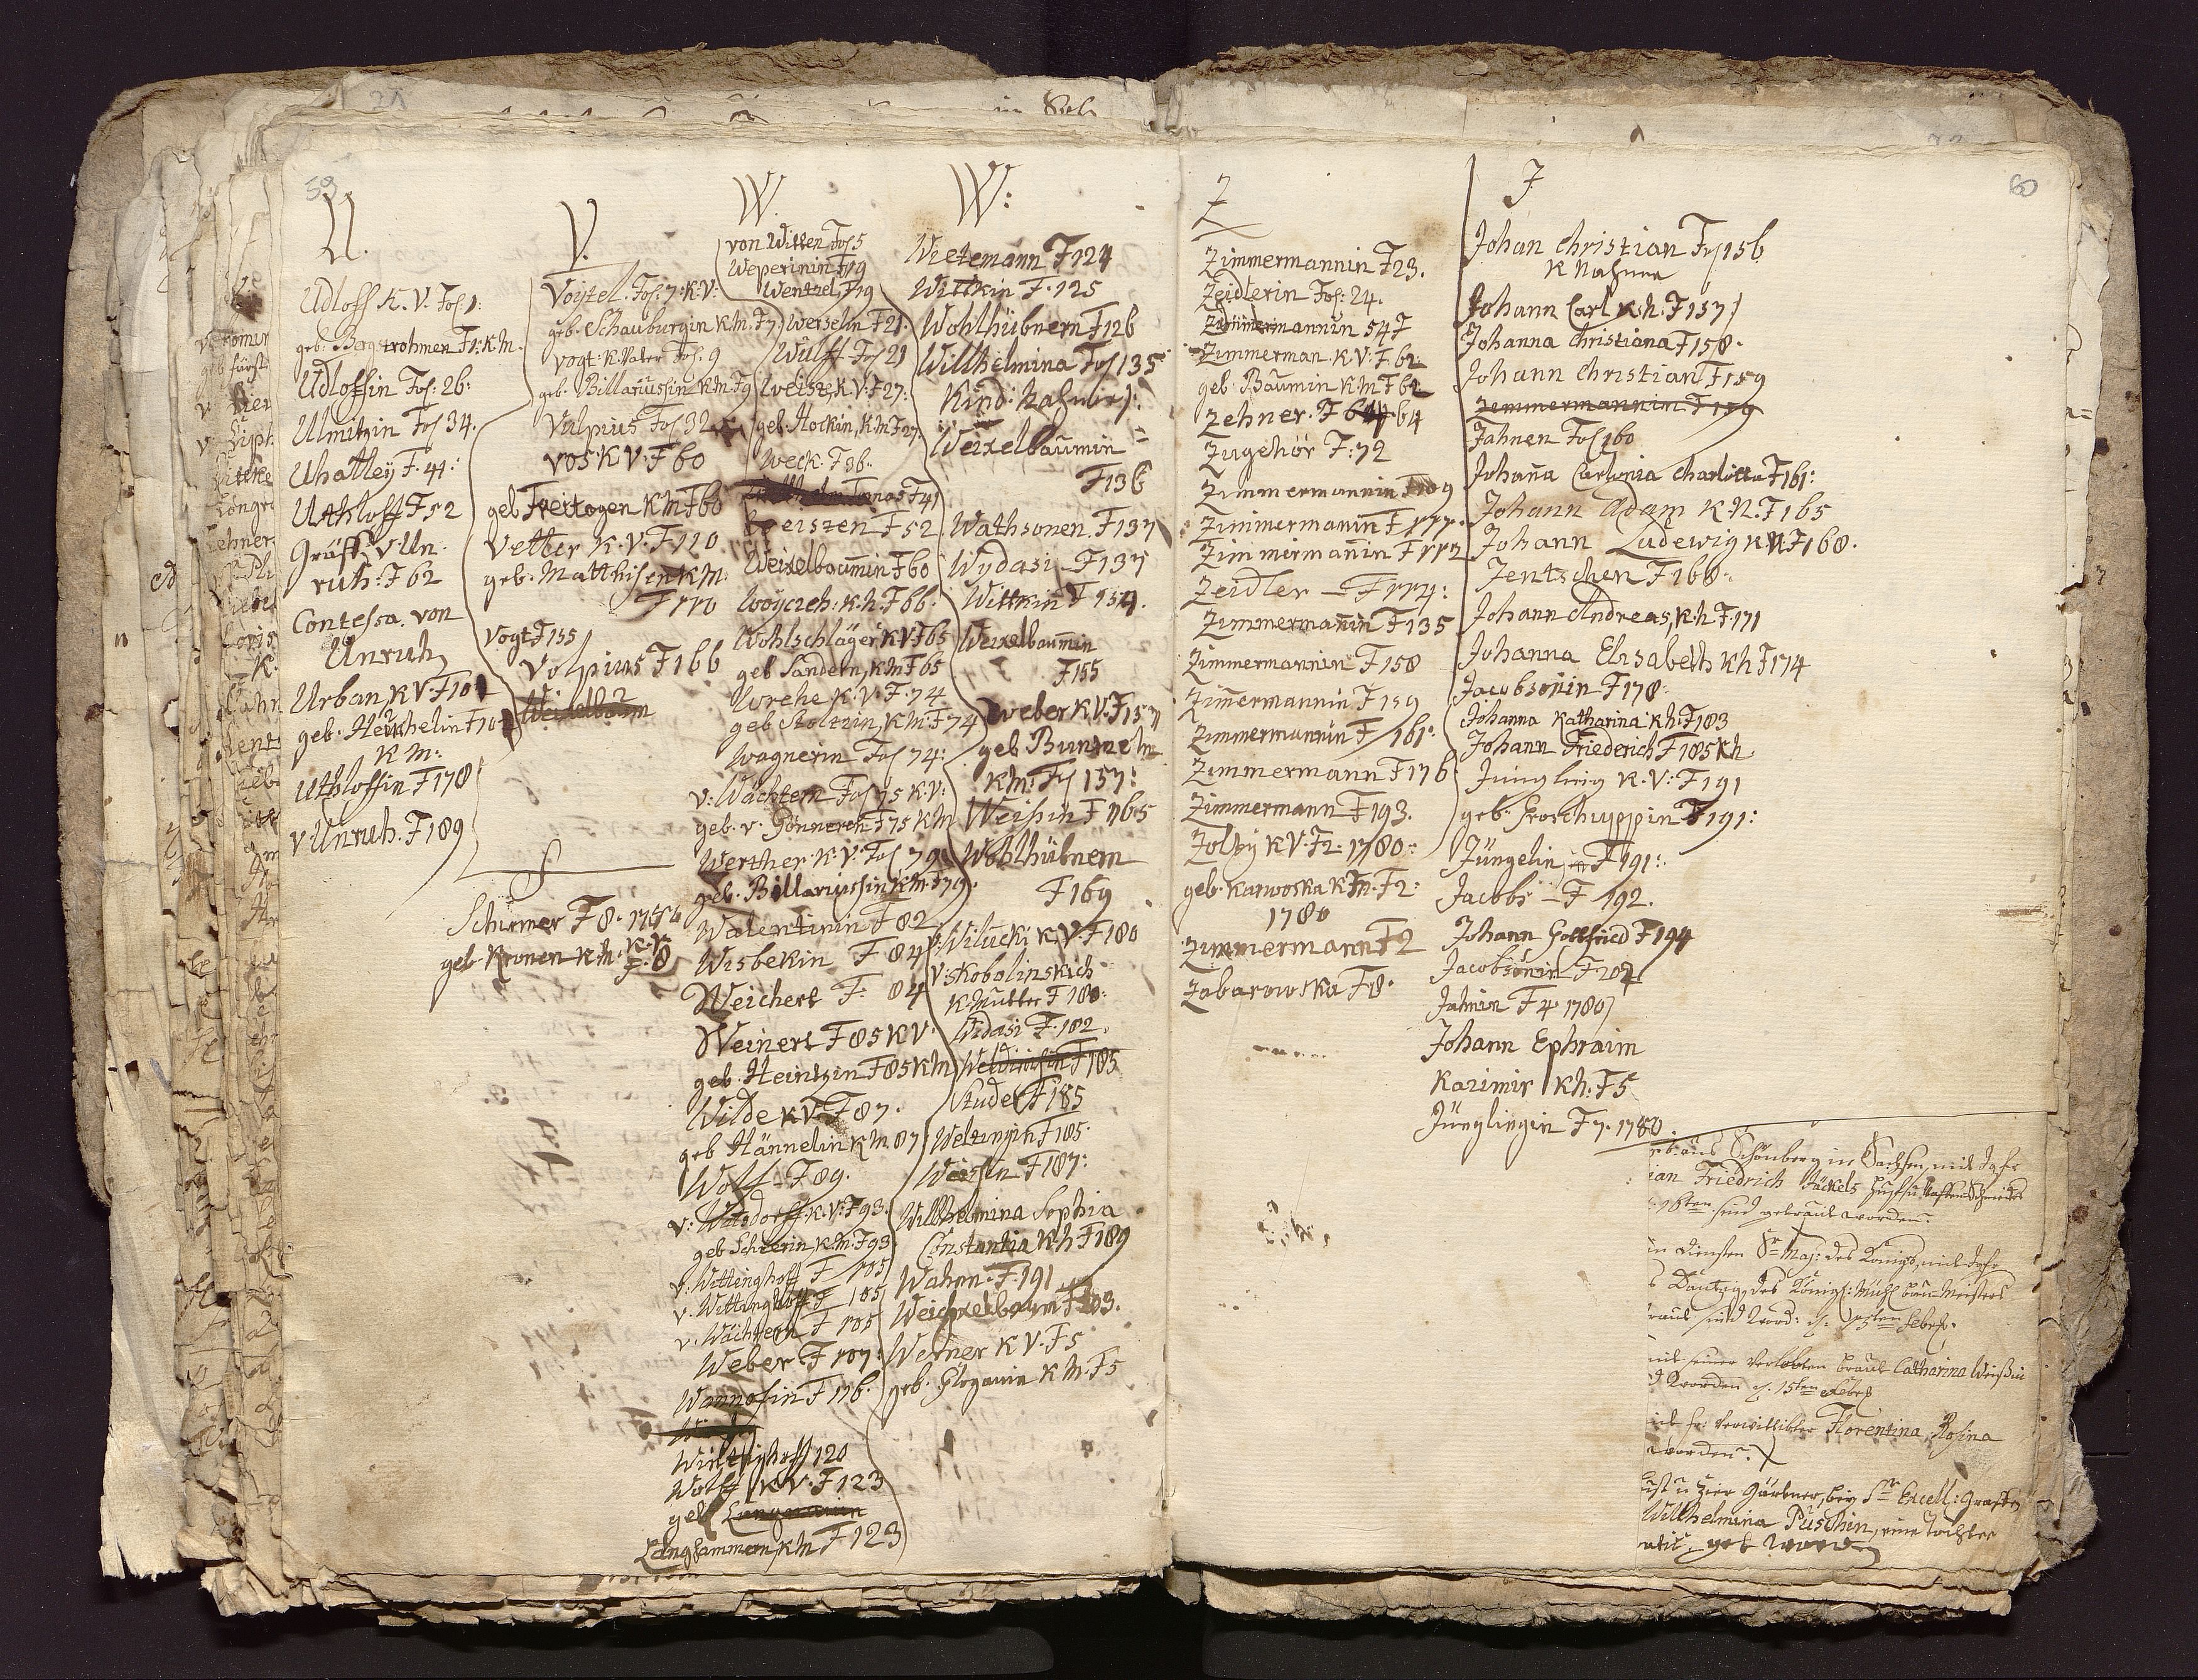 59
U.
Udloff K. V. Fol. 1:
geb. Bergstrohmen F1: K.M.
Udloffin Fol: 26:
Ulmitzin Fol 34.
Uhatley F. 41:
Uthloff F 52
Gräff: v Un-
ruh: F 62
Contessa. von
Unruh
Urban, K V. F 101
geb. Henschelin F 101
K M:
Uthloffin F 178
v: Unruh. F 189
V.
Voijtel. Fol. 7: K. V:
geb. Schauburgin K M. F 7
Vogt: K. Vater Fol. 9
geb. Billariussin K M. F 9
Vulpius Fol 32
Vos: K V: F 60
geb Freitagen K M F 60
Vetter K. V. F 110
geb. Matthisen K M:
F 110
Vogt F 155
Volpius F 166
Weixelbaum
S
Schirmer F 8. 1780
K. V.
geb Kronen K M. F. 8
W.
von Witten Fol 5
Weperinin F 19
Wentzel, F 19
Werselin F 21.
Wulff Fol 21
Weise, K V. F 27:
geb. Hockin, K M F 27
Weck. F 36.
F 41
Leisten F 52
Weixelbaumin F 60
Woijczeh: K. h: F 66.
Wohlschläger K V. F 65
geb Sandern, K M F 65
Wrehe K. V. F. 74
geb Stoltzin, K M. F 74
Wagnerin Fol 74:
v: Wächtern Fol 75 K. V:
geb. v. Gönneren F 75 K M
Werther K: V: Fol 79
geb. Billariussin K M. F 79.
Walentinin F 82
Wisbekin F 84
Weichert F: 84
Weinert F 85 K V.
geb. Heintzin F 85 K M
Wilde K V. F 87.
geb Hännelin K M 87
Wolf F 89.
v: Watzdorff K: V: F 93.
geb Scherin, K M. F 93
v. Wittinghoff F 105
v. Wittinghoff F 105
v. Wächtern F 105
Weber F 107:
Wannosin F 116.
Wintinghoff 120
Wolff K V. F 123
geb Langmanin
Langhammern, K M F 123
W:
Wietemann F 124
Wittkin F. 125
Wohlhübnern F 126
Willhelmina Fol 135
Kind: Kasmir:
Weixelbaumin
F 136
Wathsonen. F 137
Wydasi F 137
Wittkin F 154.
Weixelbaumin
F 155
Weber K V. F 157
geb Bummeln
K M: Fol 157:
Weissin F 165
Wohlhübnern
F 169
v: Wilucki K. V. F 180
v: Skobolinskich
K. Mutter F 180:
Widasi F. 182.
F 185
Studer F 185
Weltzingin F 185:
Weissin F 187:
Willhelmina Sophia
Constantia K h F 189
Wahnn: F. 191
Weichxelbaum F 203.
Werner K V. F 5
geb. Glogauin K M. F 5
Z
Zimmermannin F 23.
Zeidlerin Fol: 24.
Zimmermannin 54 F
Zimmerman K. V. F. 62:
geb. Baumin K M F 62
Zehner. F 64
Zugehör F: 72
Zimmermannin F 109
Zimmermanin F 111.
Zimmermanin F 112
Zeidler F 114:
Zimmermanin F 135
Zimmermannin F 158
Zimermannin F 159
Zimmermannin F 161:
Zimmermann F 176
Zimmermann F 193.
Zolby K V. F 2: 1780:
geb: Karwoska K M. F 2:
1780
Zimmermann F 2
Zabarowska F 8.
60
J
Johan Christian Fol 156
K Nahme
Johann Carl K. h. F 157
Johanna Christiana F 158.
Johann Christian F 159
Zemmermannin F 159
Jahnen Fol 160
Johana Carlonia Charlotta F 161:
Johann Adam K. N. F 165
Johann Ludewig K N F 168.
Jentschen F 168.
Johann Andreas, K. h. F 171
Johanna Elisabeth K h F 174
Jacobsonin F 178:
Johanna Katharina K h. F 183
Johann Friederich F 185 K h.
Jüngling K. V: F 191
geb: Froschuppin F 191:
Jüngelin F 191:
Jacobs F 192.
Johann Gottfried F 194
Jacobsonin F 202
Jahnin F 4 1780
Johann Ephraim
Kazimir K h: F 5
Jünglingin F 7. 1780.
aus Schönberg in Sachsen, mit Jgfr
ian Friedrich Jäckels
16ten sind getraut worden.
in Diensten Sr Maj: des Königs, mit Jgfr
mit seiner Verlobten braut Catharina Weißin
worden d. 15ten Febr
Florentina Rosina
worden.
Zier Gärtner, bey Sr Excell: Grafen
Willhelmina Püschin, eine Tochter